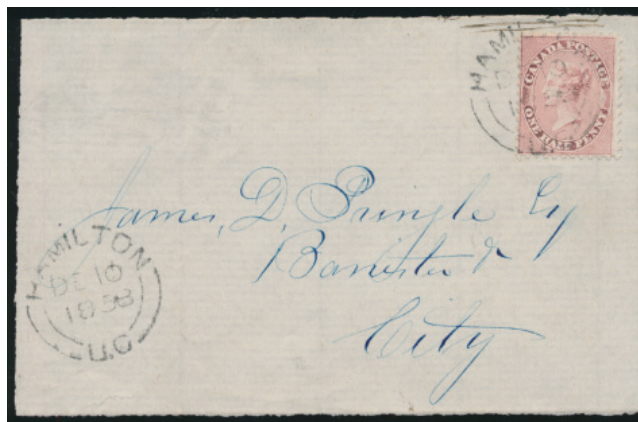 HAMILTON
CANADA POSTAGE
ONE HALF PENNY
James, D, Pringle Esq
Barrister &
City
HAMILTON
DE 10
1858
U.C